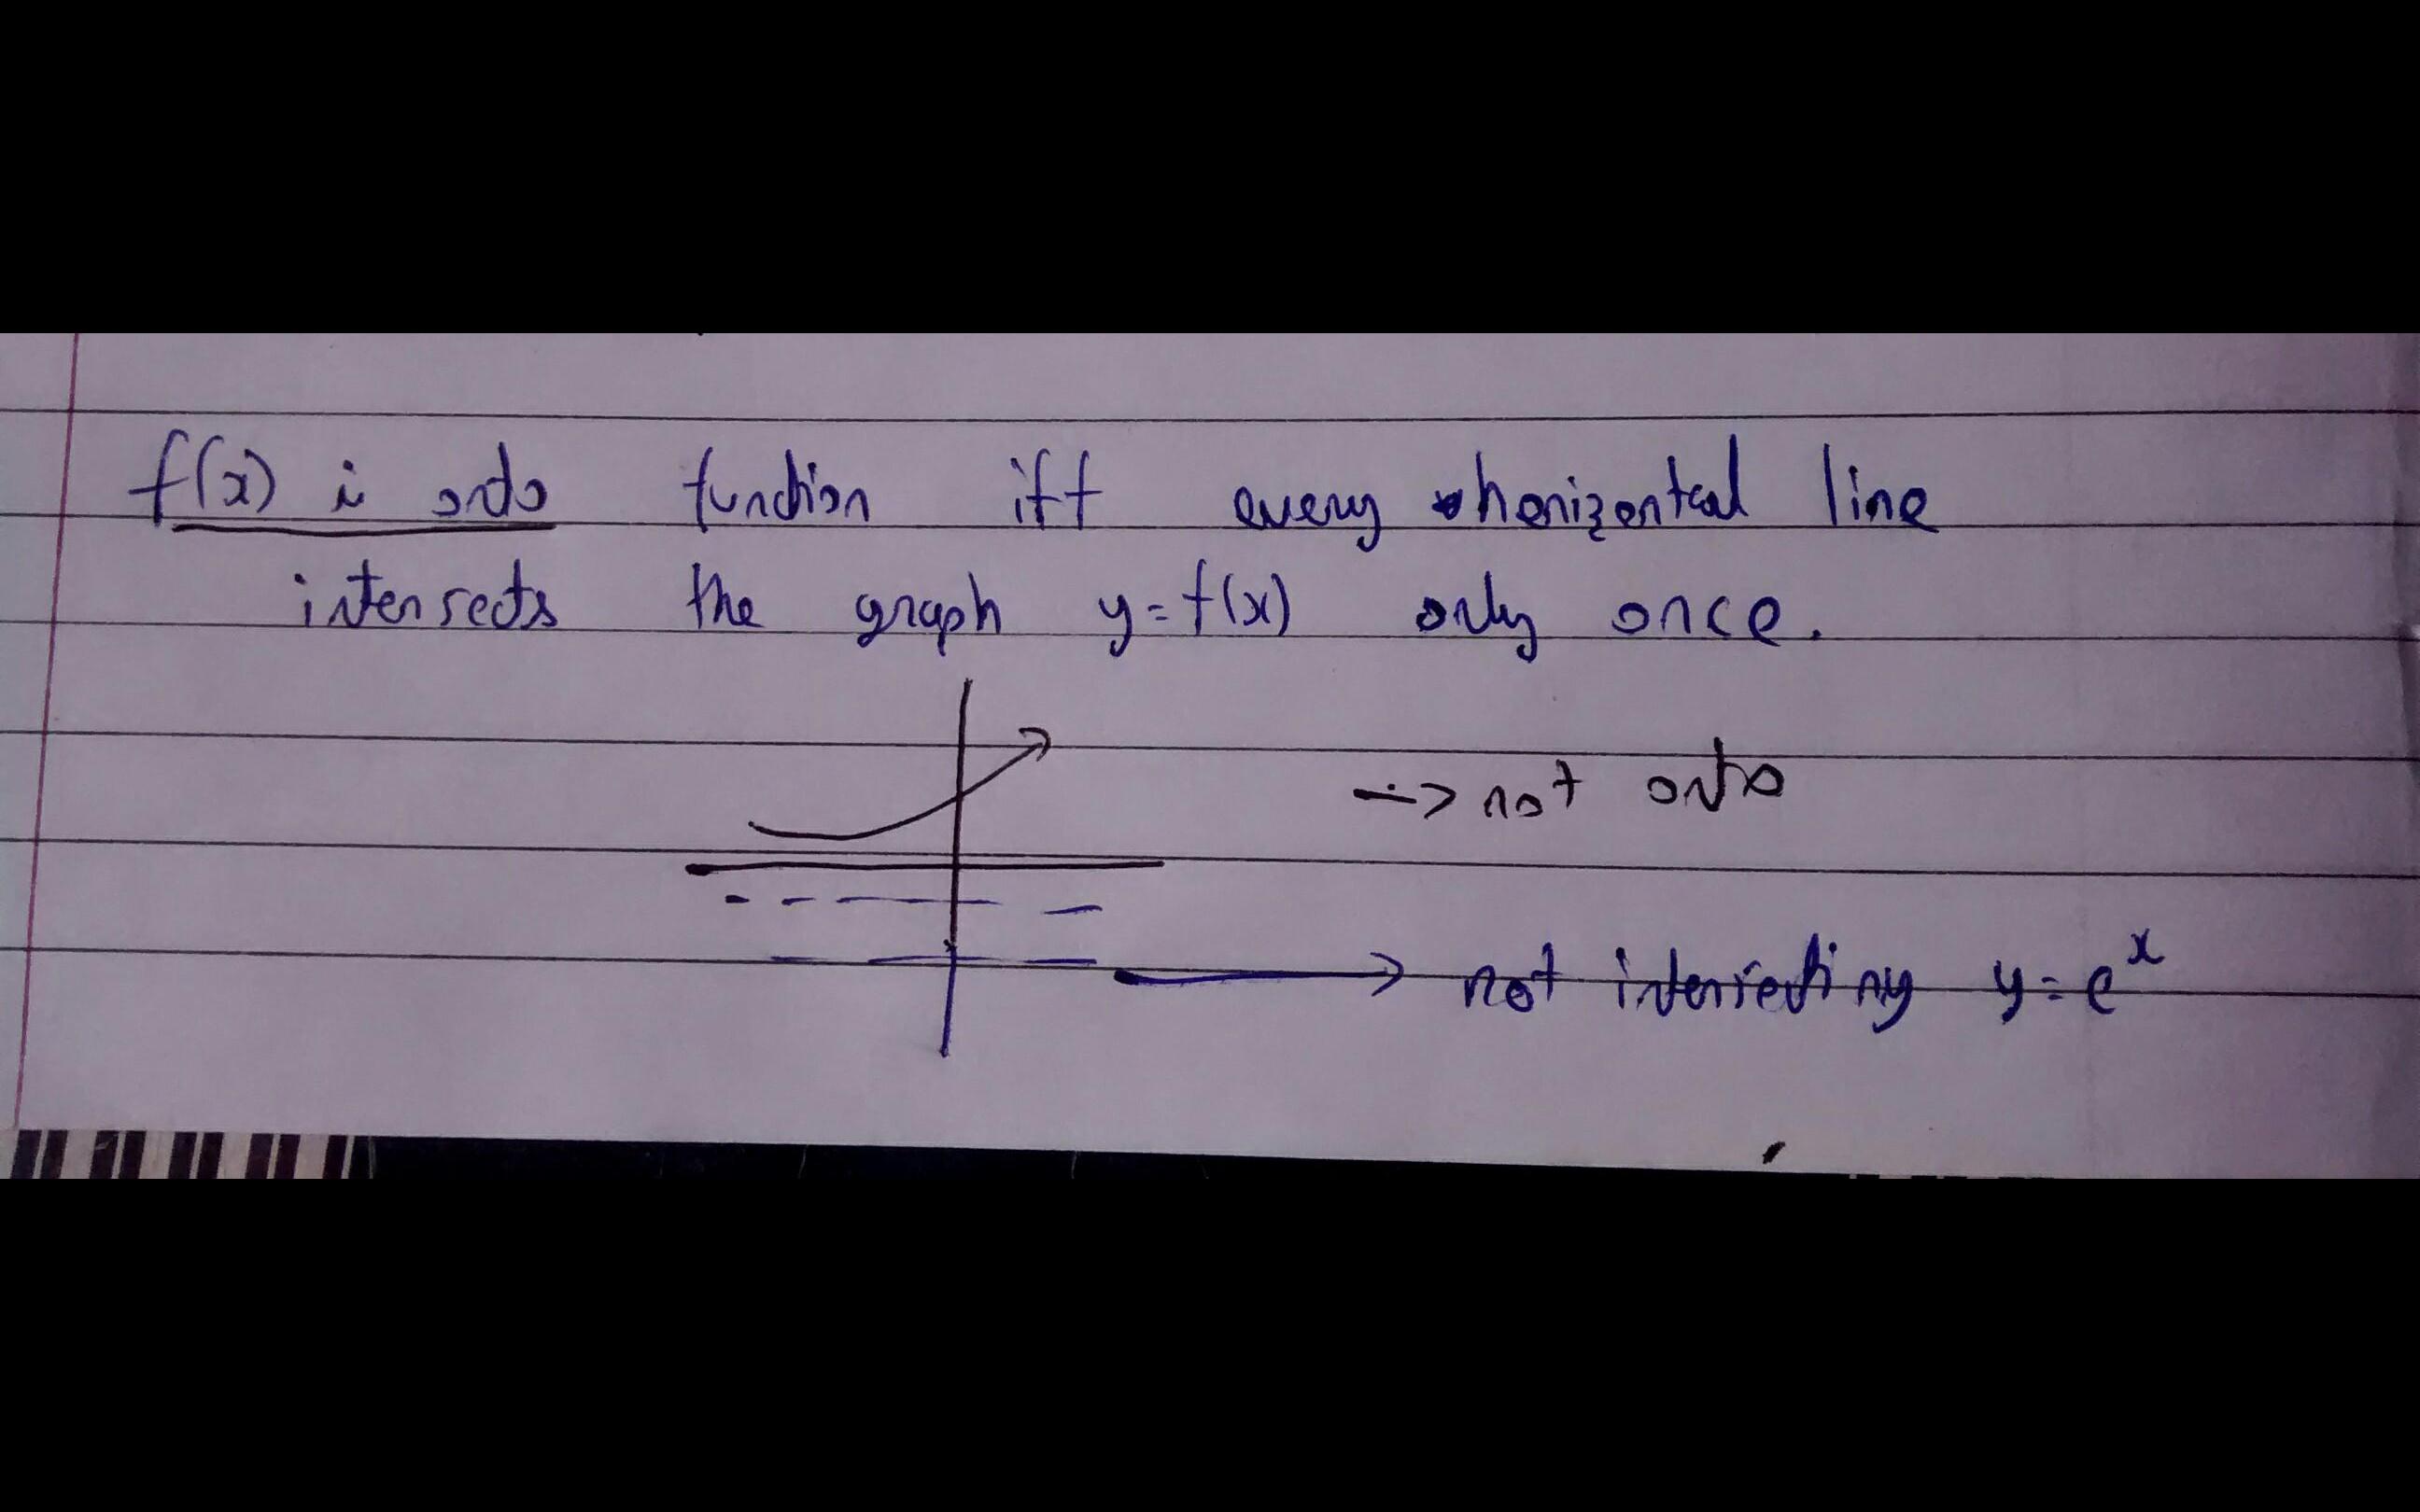 f(x) is onto function iff every horizontal line
intersects the graph y=f(x) only once.
-> not onto
-> not intersecting y=e^x